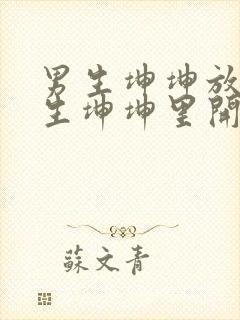 男生坤坤放
生坤坤里開
蘇文青